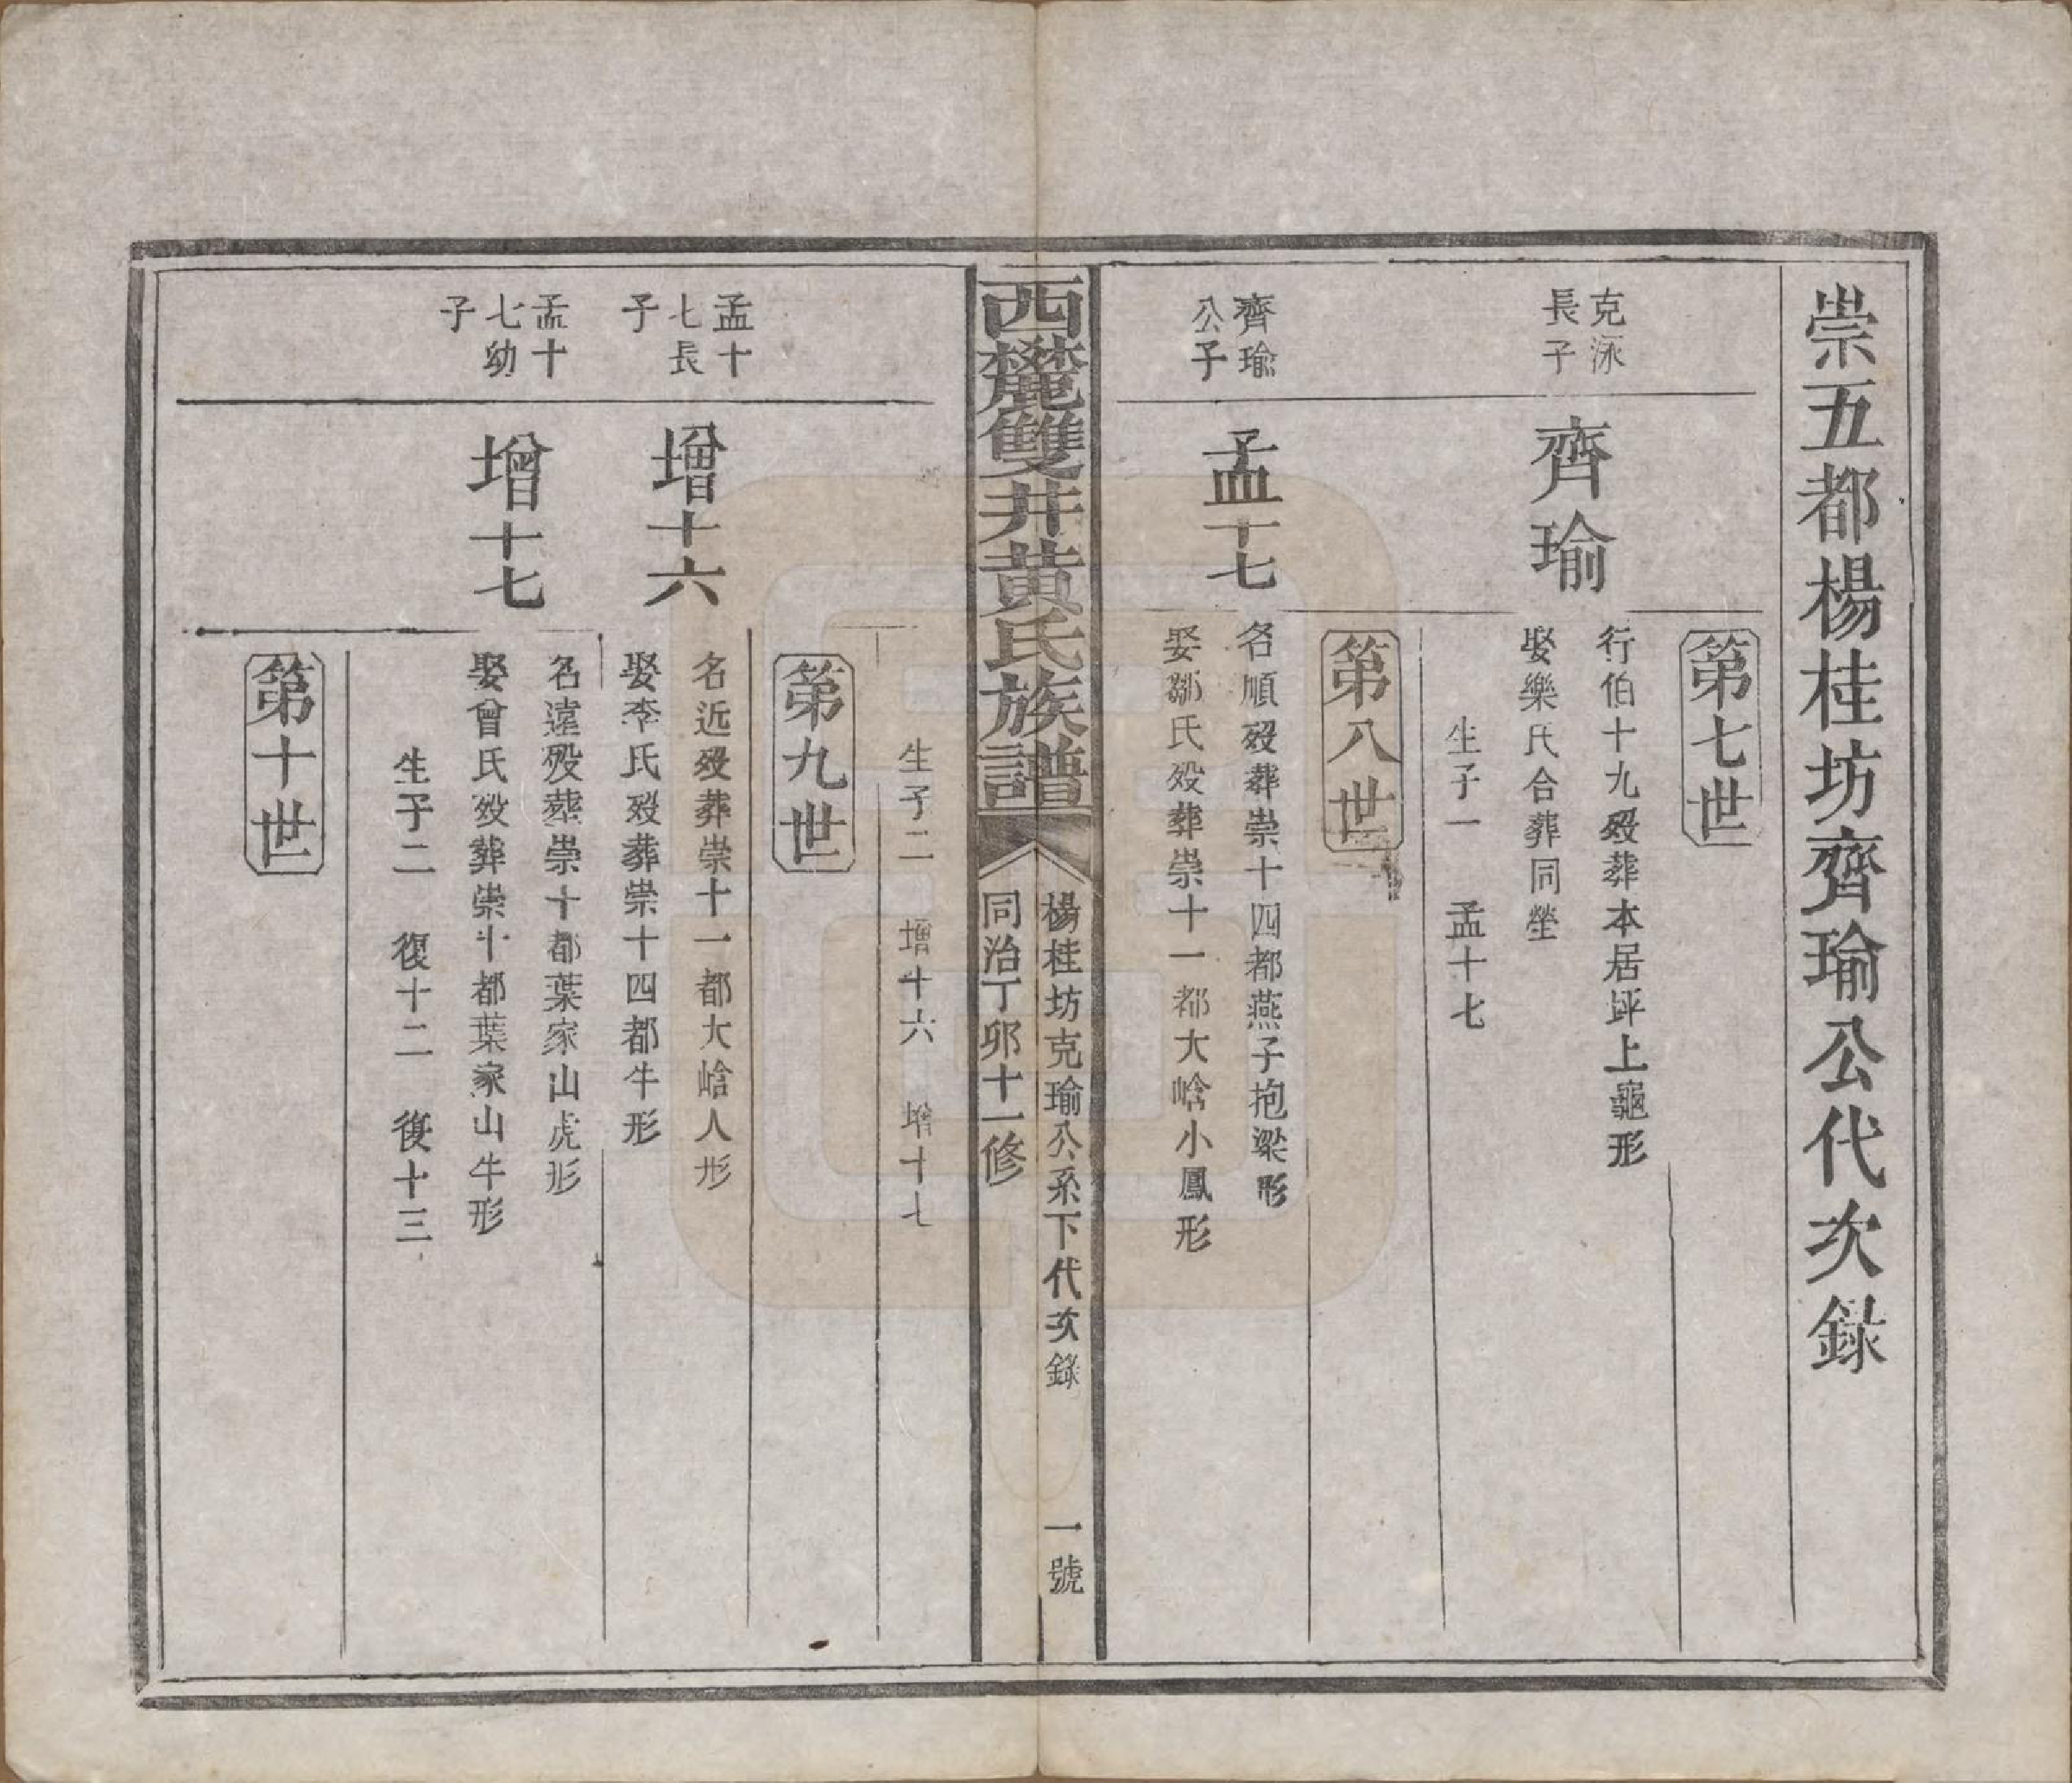 崇五都楊桂坊齊瑜公代次錄
第七世
克泳
長子
齊瑜
行伯十九歿葬本居坪上龜形
娶樂氏合葬同塋
生子一 孟十七
第八世
齊瑜
公子
孟十七
名順歿葬崇十四都燕子抱梁形
娶鄒氏歿葬崇十一都大峆小鳳形
西麓雙井黃氏族譜
楊桂坊克瑜公系下代次錄 一號
同治丁卯十一修
生子二 增十六 增十七
第九世
孟十
七長
子
增十六
名近歿葬崇十一都大峆人形
娶李氏歿葬崇十四都牛形
孟十
七幼
子
增十七
名遠歿葬崇十都葉家山虎形
娶曾氏歿葬崇十都葉家山牛形
生子二 復十二 復十三
第十世